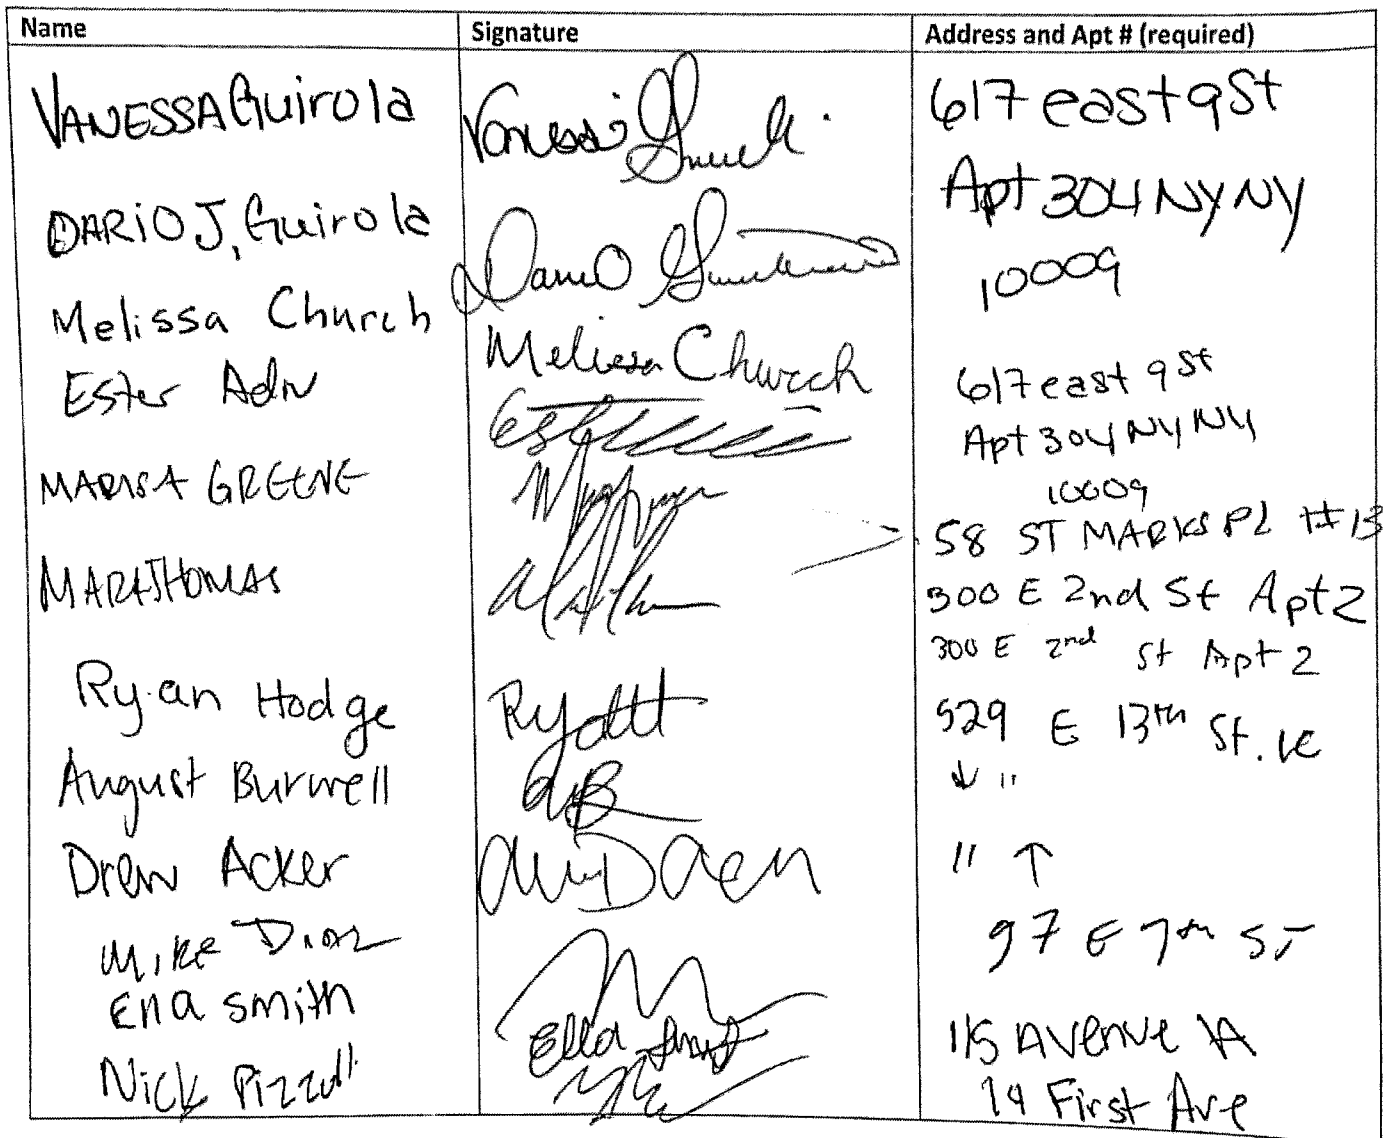 Name Signature Address and Apt # (required)
VANESSA Guirola Vanessa 617 east 9 St
Apt 304 NY NY
DARIO J. Guirola Dario 10009
Melissa Church Melissa Church
Ester Adiv 617 east 9 St
Apt 304 NY NY
10009
MARISA GREENE 58 ST MARKS PL #13
MARK THOMAS 300 E 2nd St Apt 2
300 E 2nd St Apt 2
Ryan Hodge 529 E 13th St. 1C
August Burwell AB ↓ "
Drew Acker " ↑
MIKE DIAZ 97 E 7th ST
Ella Smith Ella Smith 115 Avenue A
Nick Pizzulli 14 First Ave